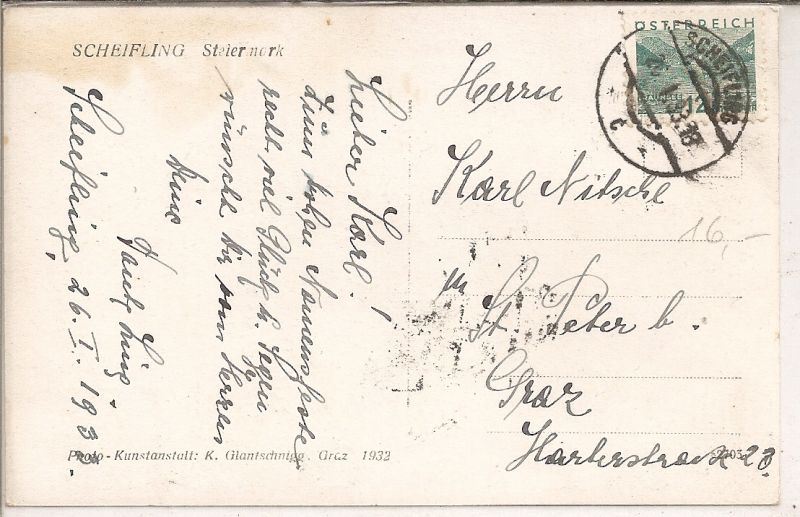 SCHEIFLING Steiermark
Lieber Karl!
Deinem hohen Namensfeste
recht viel Glück u. Segen
wünscht Dir vom Herzen
Deine
Tante
Scheifling, 26. I. 193
Photo-Kunstanstalt: K. Glantschnigg, Graz 1932
ÖSTERREICH
12
SCHEIFLING
Herrn
Karl Nitsche
16,-
in St. Peter b.
Graz
Harterstrasse 23.